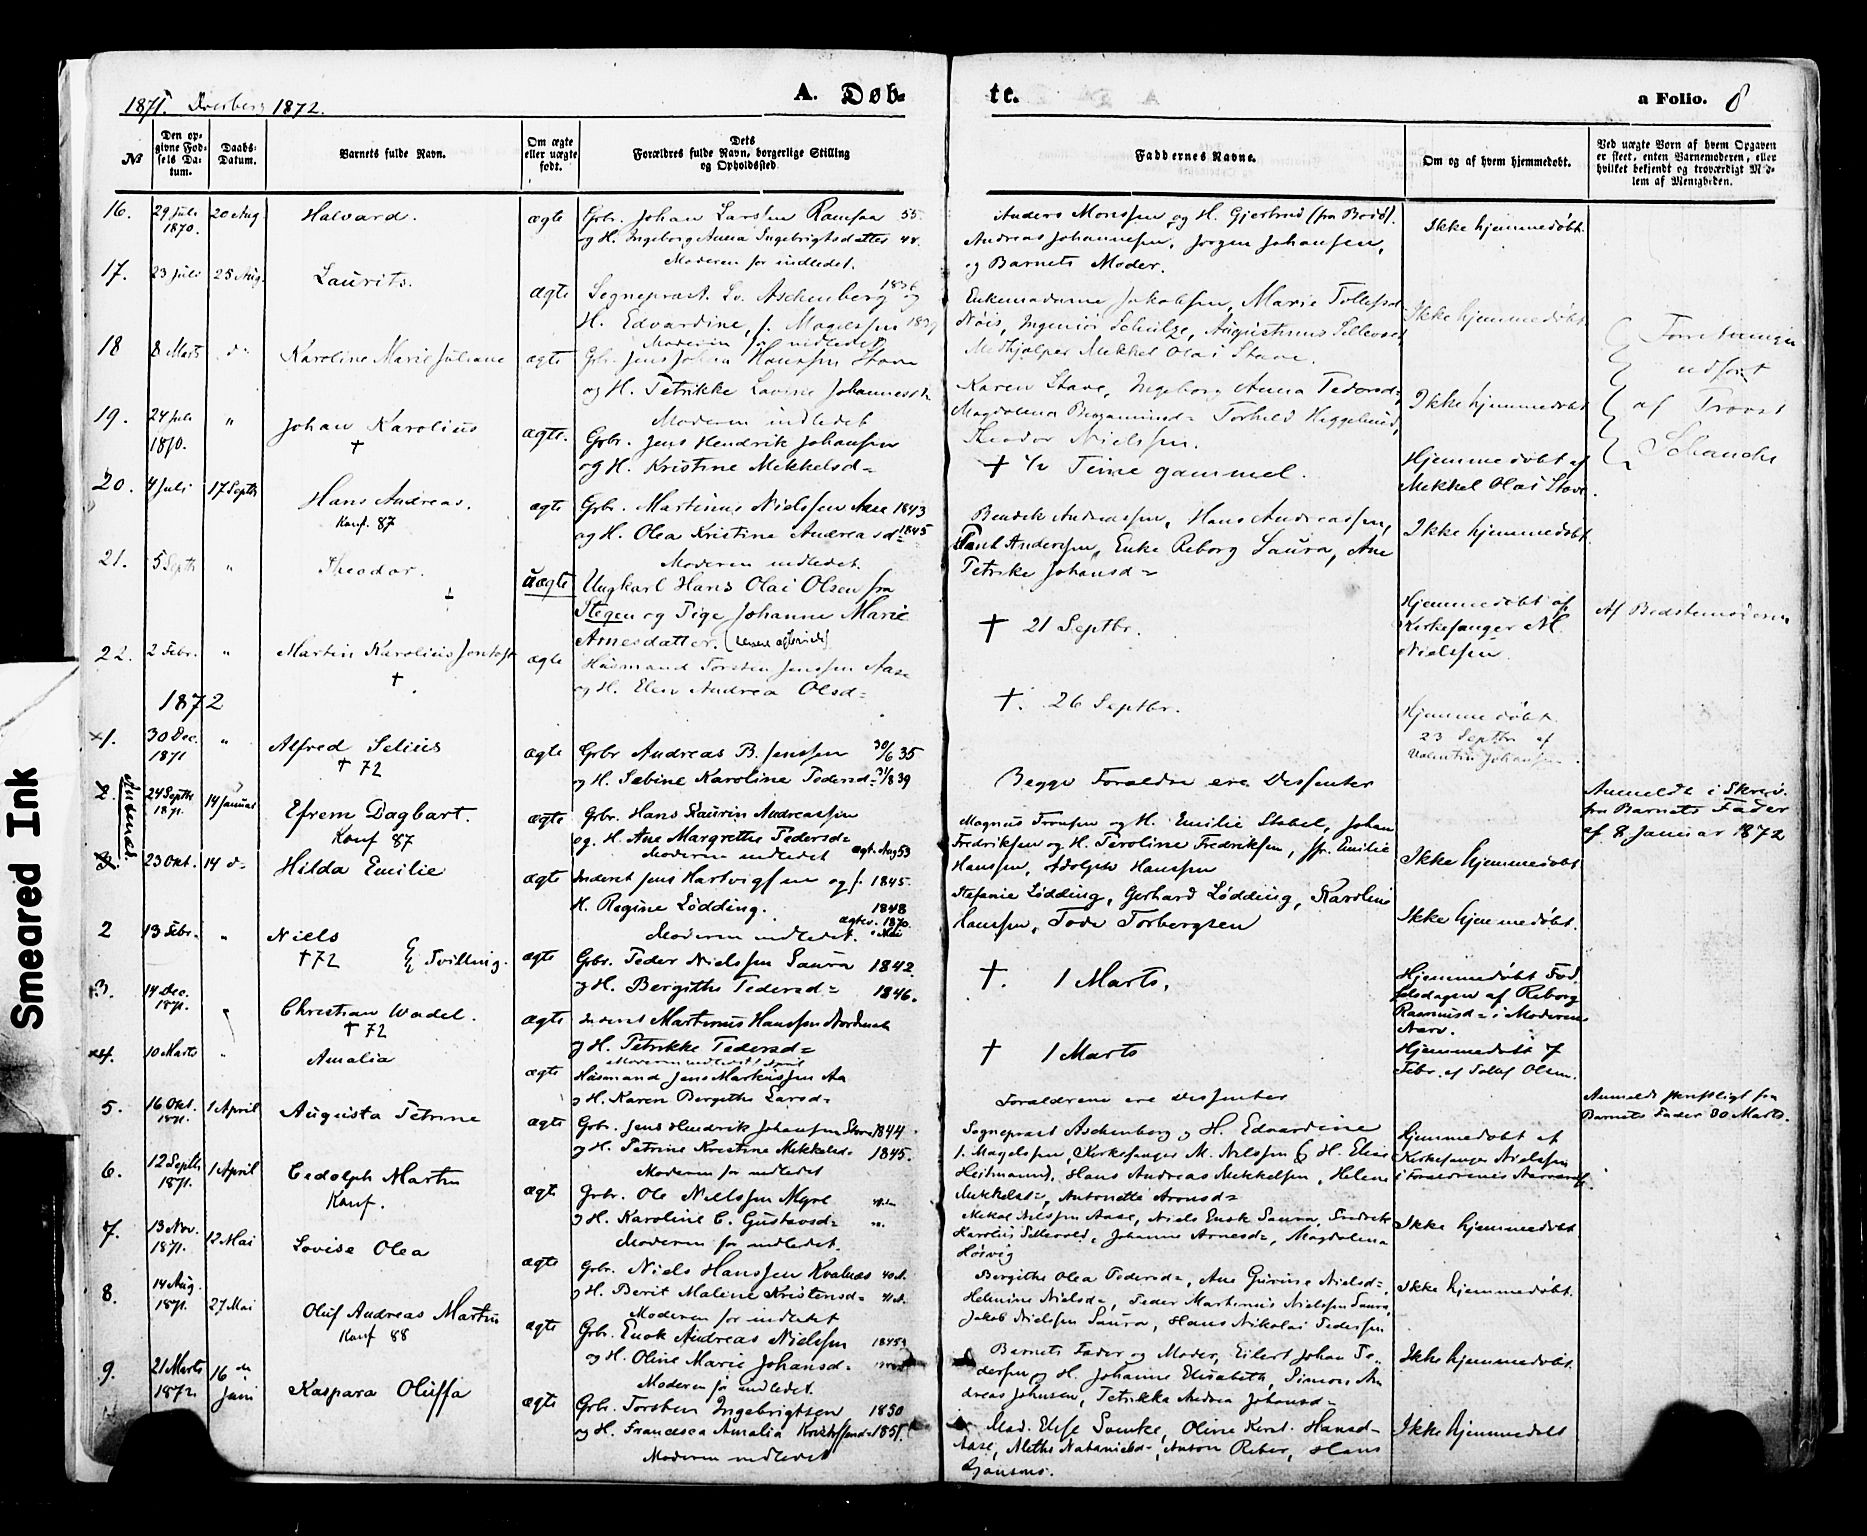 1871. Dverberg 1872.
A. Døb-
te.
a Folio. 8
No
Den op-
givne Fød-
sels Da-
tum.
Daabs-
Datum.
Barnets fulde Navn.
Om ægte
eller uægte
født.
Dets
Forældres fulde Navn, borgerlige Stilling
og Opholdssted.
Faddernes Navne.
Om og af hvem hjemmedøbt.
Ved uægte Børn af hvem Opgaven
er skeet, enten Barnemoderen, eller
hvilket bekjendt og troværdigt Med-
lem af Menigheden.
16.
29 Juli
1870.
20 Aug.
Halvard.
ægte
Gbr. Johan Larssen Ramsaa 55
og H. Ingeborg Anna Ingebrigtsdatter
Moderen for indledet.
Anders Monssen og H. Gjertrud (fra Bodø).
Andreas Johannesen, Jørgen Johansen,
og Barnets Moder.
Ikke hjemmedøbt.
17.
23 Juli
25 Aug.
Laurits.
ægte
Sogneprest Aschenberg og
H. Edvardine, f. Magelssen
Moderen for indledet
Enkemadame Jakobsen, Marie
Ingeniør Schulze,
Medhjælper Mekkel Olai Stave.
Ikke hjemmedøbt.
18
8 Marts
d
Karoline Marie Juliane
ægte
Gbr. Jens Johan Hanssen Stave
og H. Petrikke Lovise
Moderen indledet
Karen Stave, Ingeborg Anna Pedersd.
Magdalena Benjaminsd=
Theodor Nielsen.
Ikke hjemmedøbt.
Forretningen
udført
af Provst
Schanche
19.
24 Juli
1870.
"
Johan Karolius
†
ægte.
Gbr. Jens Hendrik Johansen
og H. Kristine Mekkelsd=
† ½ Time gammel.
Hjemmedøbt af
Mekkel Olai Stave.
20.
4 Juli
17 Septbr
Hans Andreas.
Konf. 87
ægte
Gbr. Martinus Nielssen Aase 1843
og H. Olea Kristine Andreasd= 1845
Moderen indledet.
Bendik Andreassen, Hans Andreassen,
Paul Anderssen, Enke Reborg Saura, Ane
Petrike Johansd=
Ikke hjemmedøbt.
21.
5 Septb
"
Theodor.
uægte
Ungkarl Hans Olai Olsen fra
Stegen og Pige Johanne Marie
Arnesdatter.
† 21 Septbr.
Hjemmedøbt af
Kirkesanger M.
Nielssen.
Af Bedstemoderen
22.
2 Febr.
"
Martin Karolius
†
ægte
Husmand Torsten Jenssen Aase
og H. Elen Andrea Olsd=
†. 26 Septbr.
Hjemmedøbt
23 Septbr af
Valentin Johansen.
1872
1.
30 Dec.
1871
"
Alfred Selius
† 72
ægte
Gbr Andreas B. Jenssen 30/6 35
og H. Sabine Karoline Pedersd= 31/8 39
Begge Forældre ere Dissenter
Anmeldt i Skriv.
fra Barnets Fader
af 8 Januar 1872
2.
24 Septbr
1871.
14 Januar
Efrem Dagbart.
Konf 87
ægte
Gbr. Hans Laurin Andreassen
og. H. Ane Margrethe Pedersd=
Moderen indledet
Magnus og H. Emilie Stabel, Johan
Fredriksen og H. Peroline Fredriksen, Jfr. Emilie
Hanssen, Adolph Hanssen
Ikke hjemmedøbt
3
23 Okt.
14 d=
Hilda Emilie
ægte
Inderst Jens Hartvigsen og f. 1845.
H. Regine Lødding. 1848
Moderen indledet. Mai
Stefanie Lødding, Gerhard Lødding, Karoline
Hanssen, Tode Torbergsen
Ikke hjemmedøbt.
2
13 Febr.
"
Niels
† 72
Tvilling.
ægte
Gbr. Peder Nielssen Saura 1842.
og H. Bergithe Pedersd= 1846.
†. 1 Marts.
Hjemmedøbt Fød.
selsdagen af Reborg
Rasmusd= i Moderens
3.
14 Dec.
1871.
"
Christian Wadel.
† 72
ægte
Inderst Martinus Hanssen
og H. Petrikke Pedersd=
† 1 Marts
Hjemmedøbt 7
Febr. af Olsen.
4.
10 Marts
"
Amalia
ægte
Husmand Jens Markussen Aa
og H. Karen Bergithe Larsd=
Forældrene ere Dissenter
Anmeldt skriftligt fra
Barnets Fader 30 Marts.
5.
16 Okt.
1871.
1 April
Augusta Petrine
ægte
Gbr. Jens Hendrik Johansen 1844
og H. Petrine Kristine Mekkelsd= 1845.
Moderen for indledet
Sogneprest Aschenberg og H. Edvardine
f. Magelssen, Kirkesanger M. Nilssen & H. Elise
Heitmann), Hans Andreas Mekkelsen, Helene
Mekkelsd=, Antonette Arnesd=
Hjemmedøbt af
Kirkesanger Nielssen
i Forældrenes
6.
12 Septb
1871.
1 April
Martin
Konf.
ægt
Gbr. Ole Nielssen Myre
og H. Karoline C. Gustavsd=
Moderen for indledet.
Mekal Nilssen Aase, Niels Enok Saura, Fredrik
Karolius Johanne Arnesd=, Magdalena
Ikke hjemmedøbt.
7.
13 Nov.
1871.
12 Mai
Lovise Olea
ægte
Gbr. Niels Hanssen Kvalnæs
og H. Berit Maline Kristensd=
Moderen for indledet
Bergithe Olea Pedersd=, Ane Gurine Nielsd=,
Helmine Nielsd=, Peder Martinus Nielssen Saura,
Jakob Nielssen Saura, Hans Nikolai Pedersen
Ikke hjemmedøbt.
8.
14 Aug.
1871.
27 Mai
Oluf Andreas Martin
Konf 88
ægte
Gbr. Enok Andreas Nielssen
og H. Oline Marie Johansd=
Moderen for indledet.
Barnets Fader og Moder, Eilert Johan Pe-
dersen og H. Johanne Elisabeth, Simon An
dreas Johnsen, Petrikka Andrea Johansd=
Ikke hjemmedøbt.
9.
21 Marts
1872.
16 de
Juni
Kaspara Oluffa
ægte
Gbr. Torsten Ingebrigtsen 1850
og H. Francisca Amalia 1851.
Moderen indledet
Mad. Elise Oline Hansd=
Aase, Anton Reber, Hans
Ikke hjemmedøbt
Smeared Ink